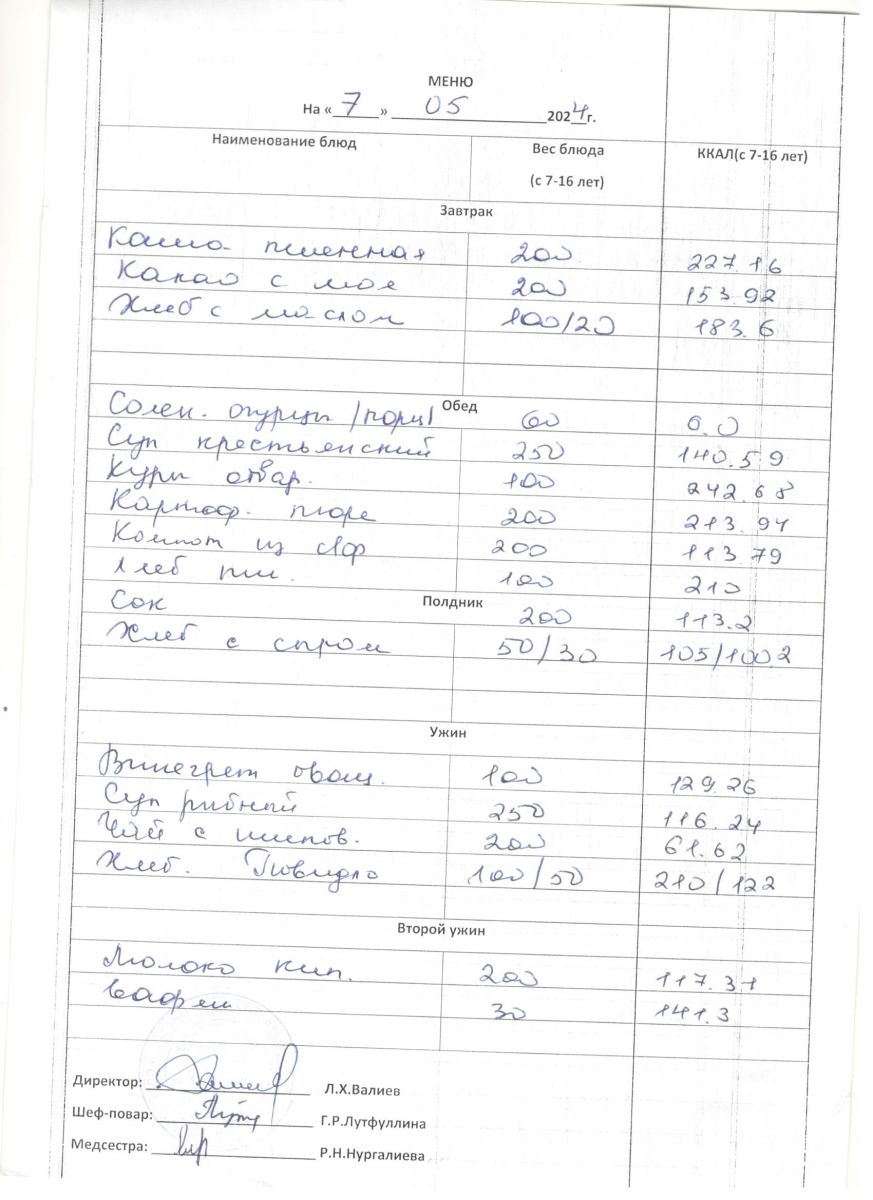 МЕНЮ
На « 7 » 05 2024г.
Наименование блюд Вес блюда (с 7-16 лет) ККАЛ(с 7-16 лет)
Завтрак
Каша пшенная 200 227.16
Какао с мол 200 153.92
Хлеб с маслом 100/20 183.6
Обед
Солен. огурцы /порц/ 60 6.0
Суп крестьянский 250 140.59
Куры отвар. 100 242.68
Картоф. пюре 200 213.94
Компот из с/ф 200 113.79
Хлеб пш. 100 210
Полдник
Сок 200 113.2
Хлеб с сыром 50/30 105/100.2
Ужин
Винегрет овощ. 100 129.26
Суп рыбный 250 116.24
Чай с шипов. 200 61.62
Хлеб. Повидло 100/50 210/122
Второй ужин
Молоко кип. 200 117.31
Вафли 30 141.3
Директор: Л.Х.Валиев
Шеф-повар: Г.Р.Лутфуллина
Медсестра: Р.Н.Нургалиева